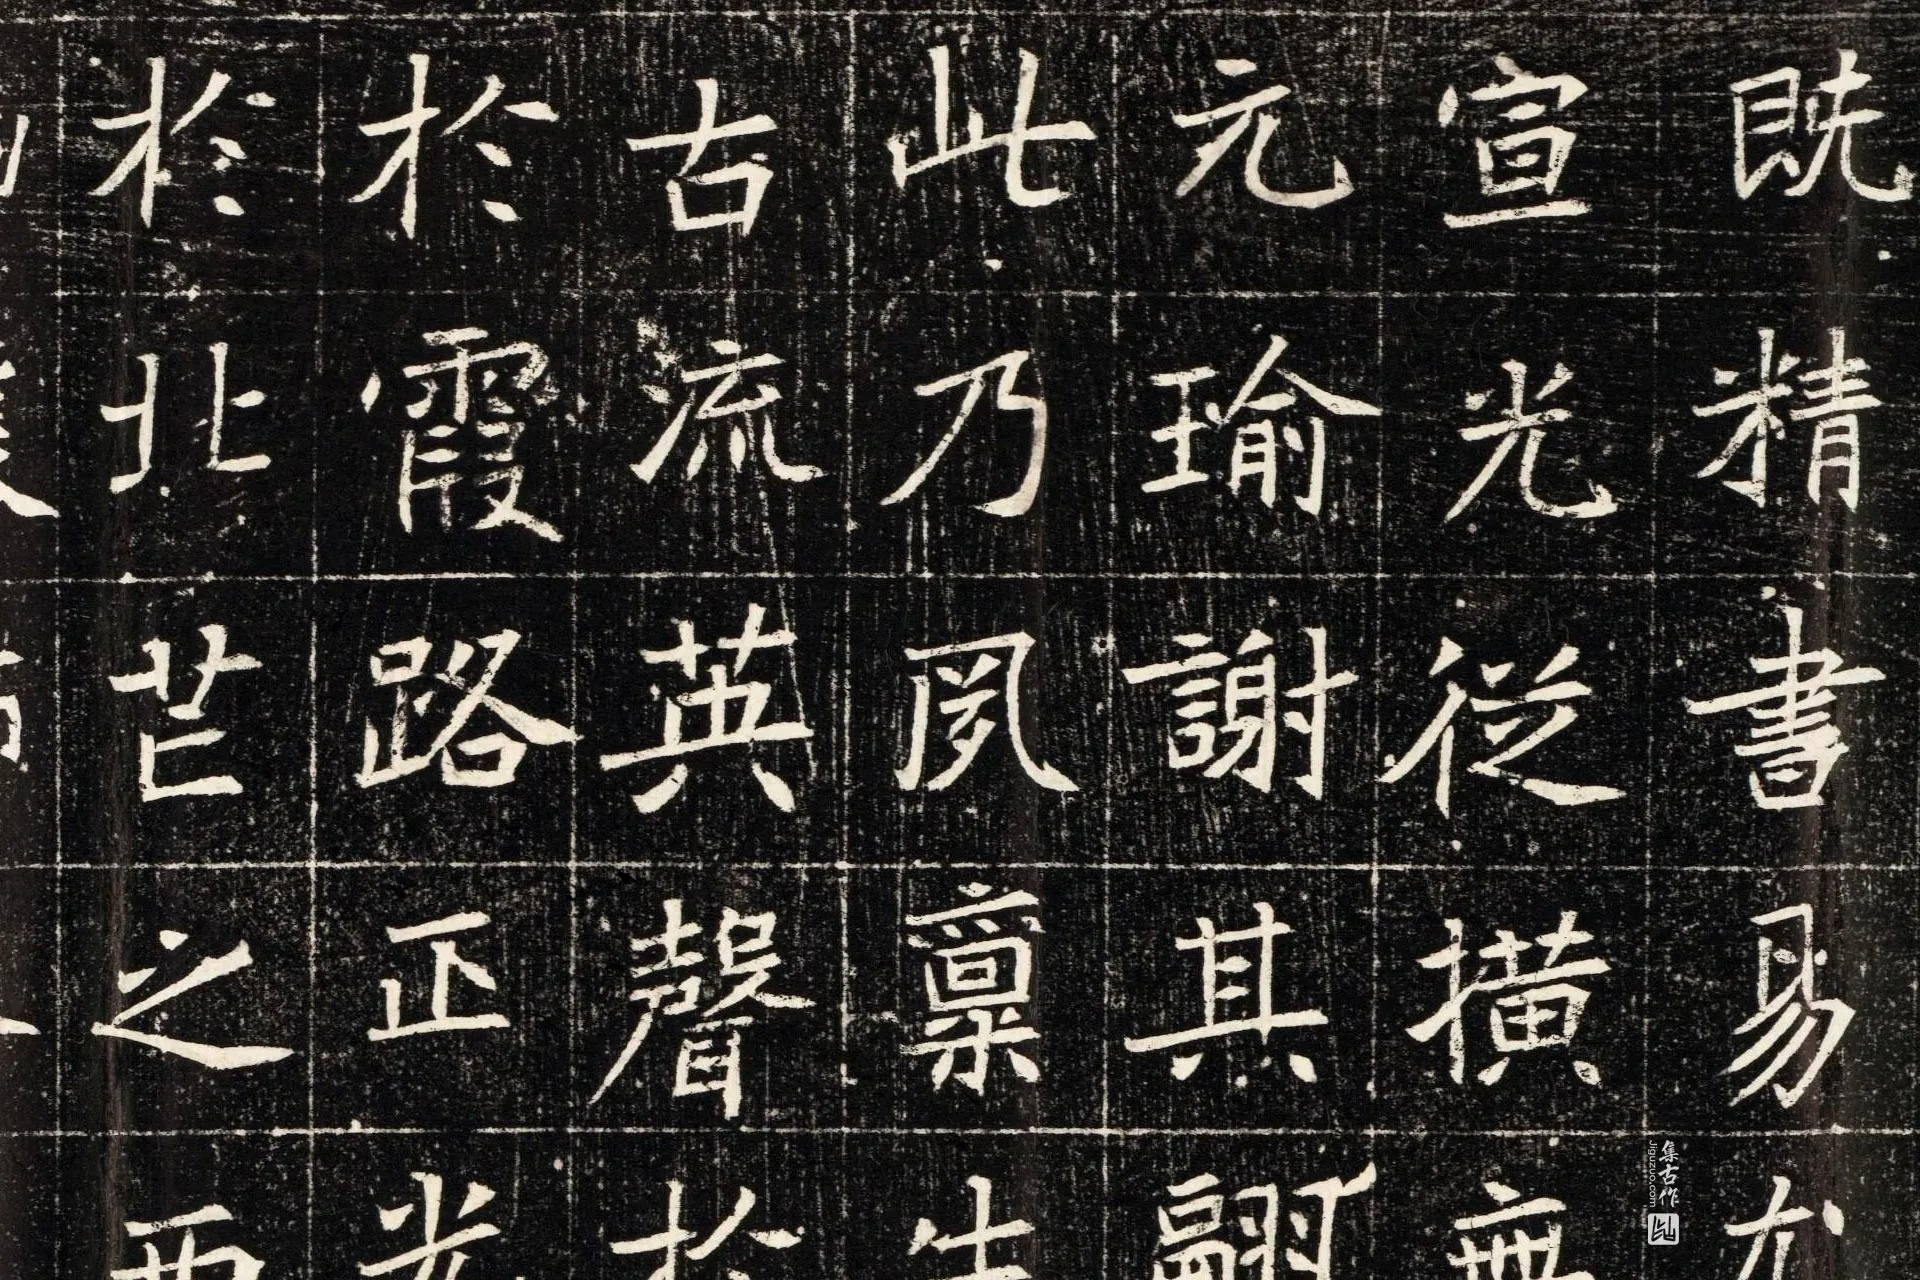 既精書易尤
宣光從横無
元瑜謝其翩
此乃夙稟生
古流英聲於
於霞路正光
於北芒之西
集古作
jiguzuo.com